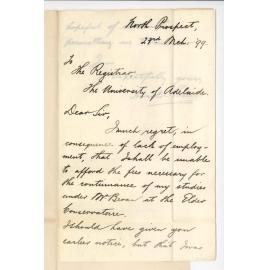 North Prospect,
28th Mch. '99.
To
The Registrar,
The University of Adelaide.
Dear Sir,
I much regret, in
consequence of lack of employ-
ment, that I shall be unable
to afford the fees necessary for
the continuance of my studies
under Mr Bevan at the Elder
Conservatore.
I should have given you
earlier notice, but that I was
hopeful of
something